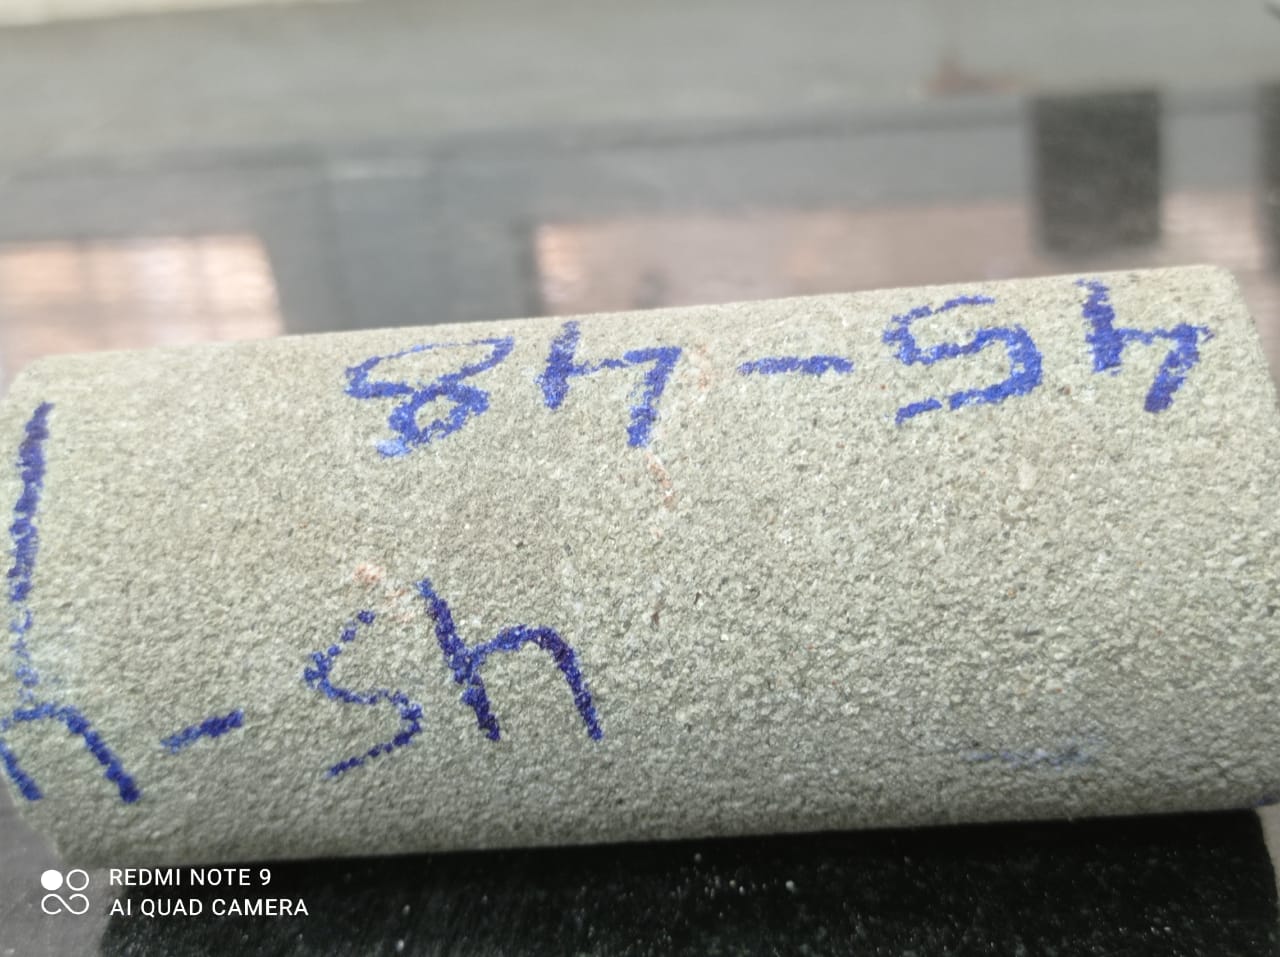 45-4
45-48
REDMI NOTE 9
AI QUAD CAMERA